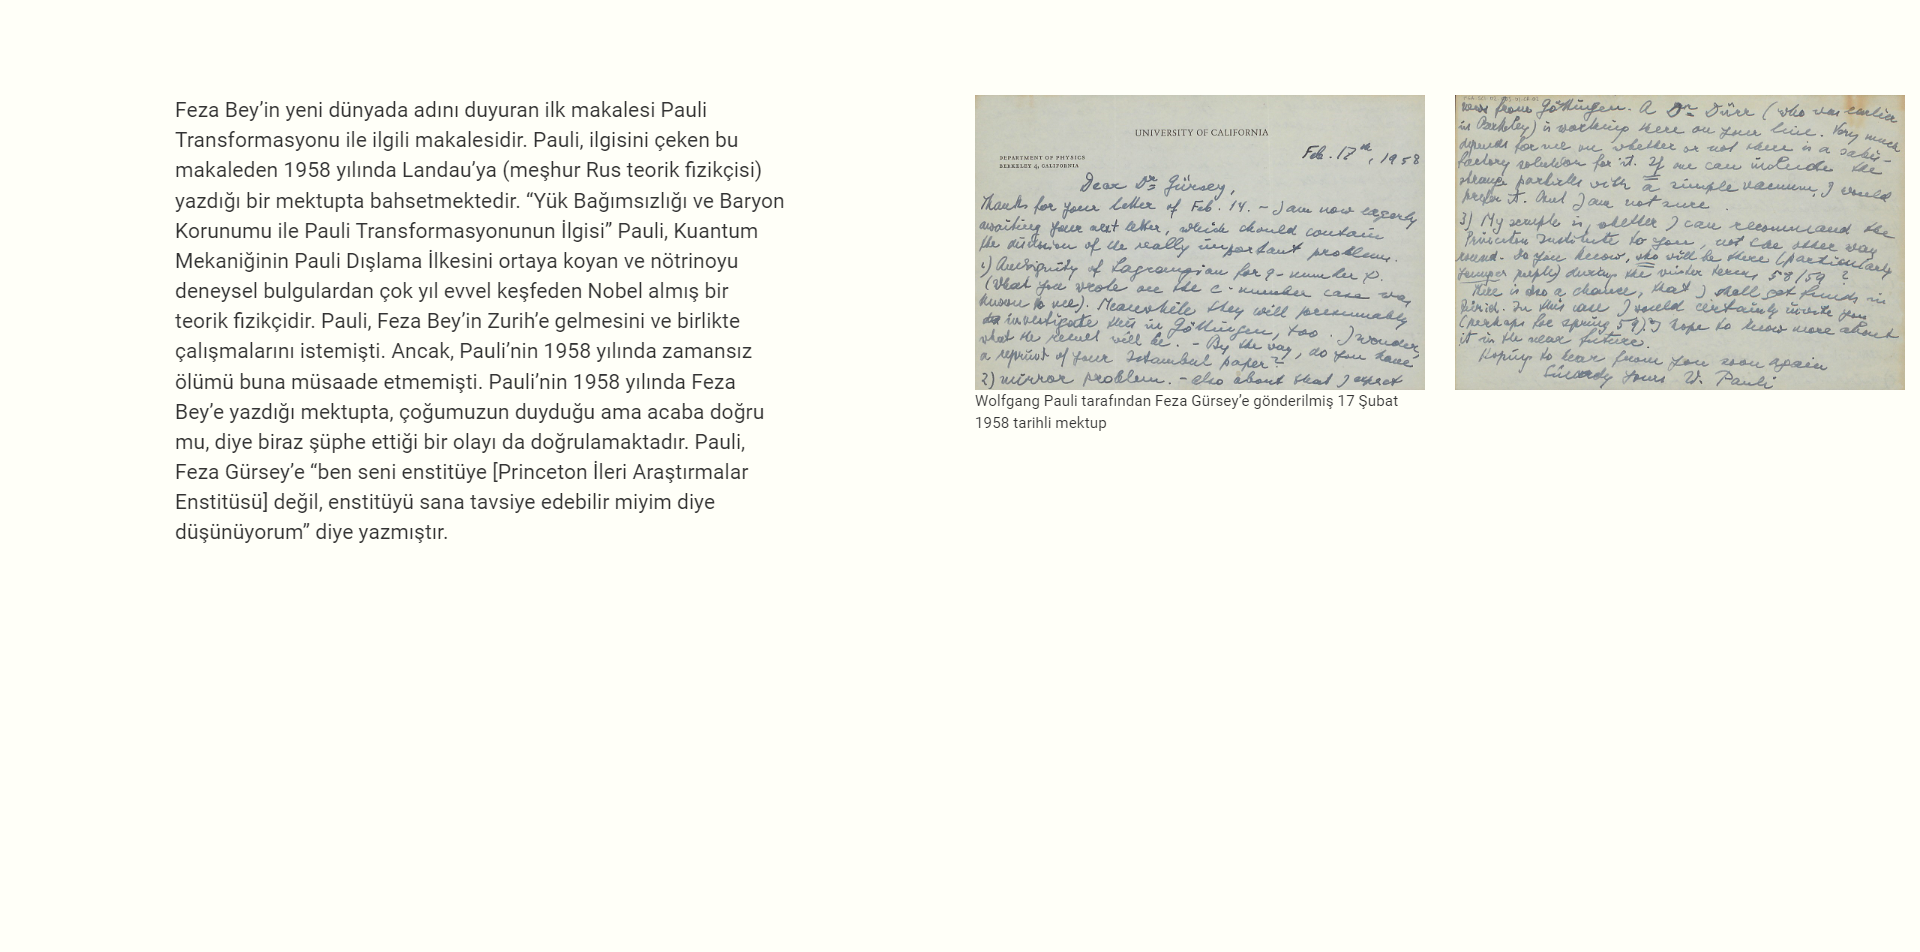 Feza Bey’in yeni dünyada adını duyuran ilk makalesi Pauli
Transformasyonu ile ilgili makalesidir. Pauli, ilgisini çeken bu
makaleden 1958 yılında Landau’ya (meşhur Rus teorik fizikçisi)
yazdığı bir mektupta bahsetmektedir. “Yük Bağımsızlığı ve Baryon
Korunumu ile Pauli Transformasyonunun İlgisi” Pauli, Kuantum
Mekaniğinin Pauli Dışlama İlkesini ortaya koyan ve nötrinoyu
deneysel bulgulardan çok yıl evvel keşfeden Nobel almış bir
teorik fizikçidir. Pauli, Feza Bey’in Zurih’e gelmesini ve birlikte
çalışmalarını istemişti. Ancak, Pauli’nin 1958 yılında zamansız
ölümü buna müsaade etmemişti. Pauli’nin 1958 yılında Feza
Bey’e yazdığı mektupta, çoğumuzun duyduğu ama acaba doğru
mu, diye biraz şüphe ettiği bir olayı da doğrulamaktadır. Pauli,
Feza Gürsey’e “ben seni enstitüye [Princeton İleri Araştırmalar
Enstitüsü] değil, enstitüyü sana tavsiye edebilir miyim diye
düşünüyorum” diye yazmıştır.
UNIVERSITY OF CALIFORNIA
DEPARTMENT OF PHYSICS
BERKELEY 4, CALIFORNIA
Feb. 17th, 1958
Dear Dr Gürsey,
Thanks for your letter of Feb. 14. – I am now eagerly
awaiting your next letter, which should contain
the discussion of the really important problems.
1) Ambiguity of Lagrangian for q-number
(What you wrote on the c-number case was
known to me). Meanwhile they will presumably
investigate this in Göttingen, too. I wonder,
what the result will be. – By the way, do you have
a reprint of your Istanbul paper?
2) mirror problem. – also about that I expect
news from Göttingen. A Dr Dürr (who was earlier
in Berkeley) is working there on your line. Very much
depends for me on whether or not there is a satis-
factory solution for it. If one can include the
strange particles with a simple vacuum, I would
prefer it. But I am not sure.
3) My scruple is, whether I can recommend the
Princeton Institute to you, not the other way
round. Do you know, who will be there (particularly
younger people) during the winter term 58/59?
There is also a chance, that I shall get funds in
Zürich. In this case I would certainly invite you
(perhaps for spring 59). I hope to know more about
it in the near future.
Hoping to hear from you soon again
Sincerely yours W. Pauli
Wolfgang Pauli tarafından Feza Gürsey’e gönderilmiş 17 Şubat
1958 tarihli mektup